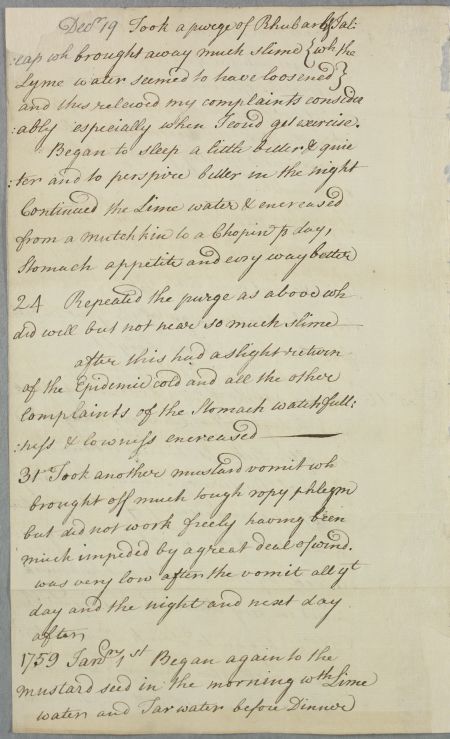 Decr. 19 Took a purge of Rhubarb & Jal:
:eap wh brought away much slime {wh the
Lyme water seemed to have loosened}
and this releived my complaints consider
:ably especially when I coud get exercise.
Began to sleep a little better & quie
:ter and to perspire better in the night
Continued the Lime water & encreased
from a mutchkin to a Chopin p day,
Stomach appetite and evry way better
24 Repeated the purge as above wh
did well but not near so much slime
after this had a slight return
of the Epidemic cold and all the other
Complaints of the Stomach watchfull:
:ness & lowness encreased
31 Took another mustard vomit wh
brought off much tough ropy phlegm
but did not work freely having been
much impeded by a great deal of wind.
was very low after the vomit all yt
day and the night and next day
after
1759 Janry 1st Began again to the
mustard seed in the morning wth Lime
water and Tar water before Dinner